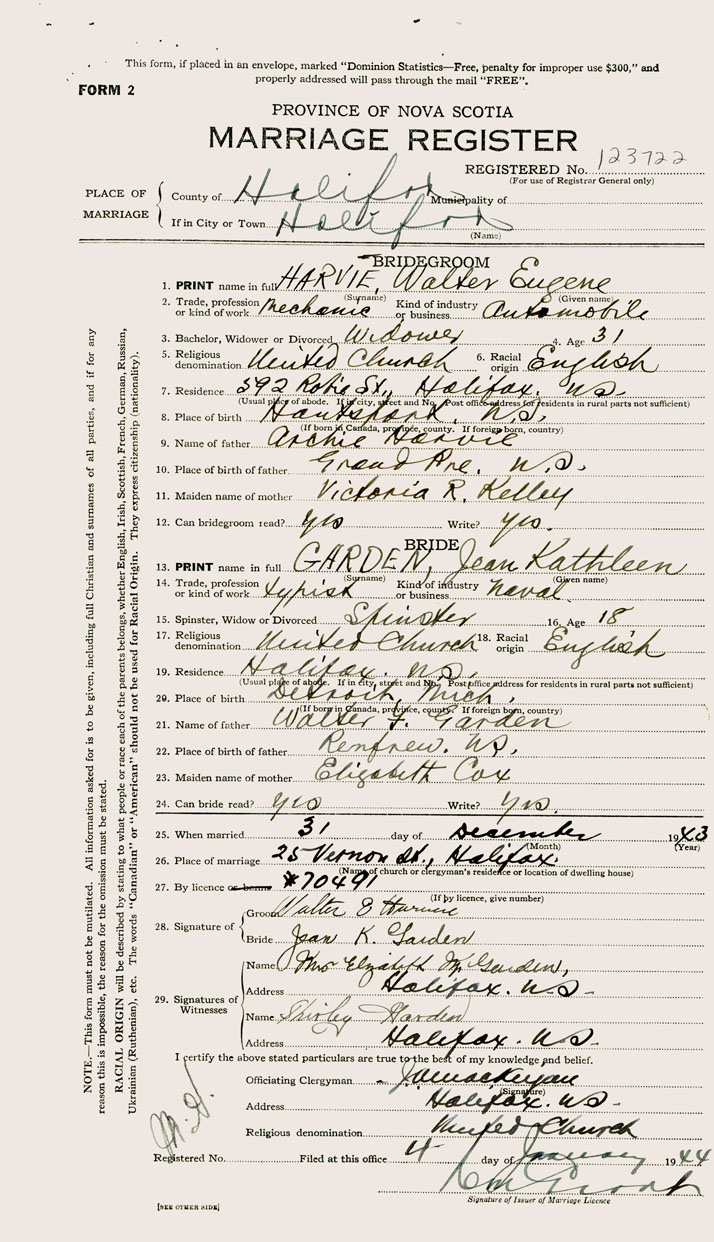 This form, if placed in an envelope, marked "Dominion Statistics—Free, penalty for improper use $300," and
properly addressed will pass through the mail "FREE".
FORM 2
PROVINCE OF NOVA SCOTIA
MARRIAGE REGISTER
REGISTERED No. 123722
(For use of Registrar General only)
PLACE OF MARRIAGE
County of Halifax Municipality of
If in City or Town Halifax
(Name)
BRIDEGROOM
1. PRINT name in full HARVIE, Walter Eugene
(Surname) (Given name)
2. Trade, profession or kind of work Mechanic Kind of industry or business Automobile
3. Bachelor, Widower or Divorced Widower 4. Age 31
5. Religious denomination United Church 6. Racial origin English
7. Residence 392 Robie St., Halifax. N.S.
(Usual place of abode. If in city, street and No. Post office address for residents in rural parts not sufficient)
8. Place of birth Hantsport, N.S.
(If born in Canada, province, county. If foreign born, country)
9. Name of father Archie Harvie
10. Place of birth of father Grand Pre. N.S.
11. Maiden name of mother Victoria R. Kelley
12. Can bridegroom read? yes Write? yes.
BRIDE
13. PRINT name in full GARDEN, Jean Kathleen
(Surname) (Given name)
14. Trade, profession or kind of work typist Kind of industry or business Naval
15. Spinster, Widow or Divorced Spinster 16. Age 18
17. Religious denomination United Church 18. Racial origin English
19. Residence Halifax. N.S.
(Usual place of abode. If in city, street and No. Post office address for residents in rural parts not sufficient)
20. Place of birth Detroit, Mich.
(If born in Canada, province, county. If foreign born, country)
21. Name of father Walter F. Garden
22. Place of birth of father Renfrew. N.S.
23. Maiden name of mother Elizabeth Cox
24. Can bride read? yes Write? yes.
25. When married 31 day of December 1943
(Month) (Year)
26. Place of marriage 25 Vernon St., Halifax.
(Name of church or clergyman's residence or location of dwelling house)
27. By licence or banns *70491
(If by licence, give number)
28. Signature of
Groom Walter E Harvie
Bride Jean K. Garden
29. Signatures of Witnesses
Name Mrs Elizabeth M. Garden,
Address Halifax. N.S.
Name Shirley Garden
Address Halifax. N.S.
I certify the above stated particulars are true to the best of my knowledge and belief.
Officiating Clergyman
(Signature)
Address Halifax. N.S.
Religious denomination United Church
Registered No. Filed at this office 4 day of January 1944
Signature of Issuer of Marriage Licence
[SEE OTHER SIDE]
NOTE.—This form must not be mutilated. All information asked for is to be given, including full Christian and surnames of all parties, and if for any
reason this is impossible, the reason for the omission must be stated.
RACIAL ORIGIN will be described by stating to what people or race each of the parents belongs, whether English, Irish, Scottish, French, German, Russian,
Ukrainian (Ruthenian), etc. The words "Canadian" or "American" should not be used for Racial Origin. They express citizenship (nationality).